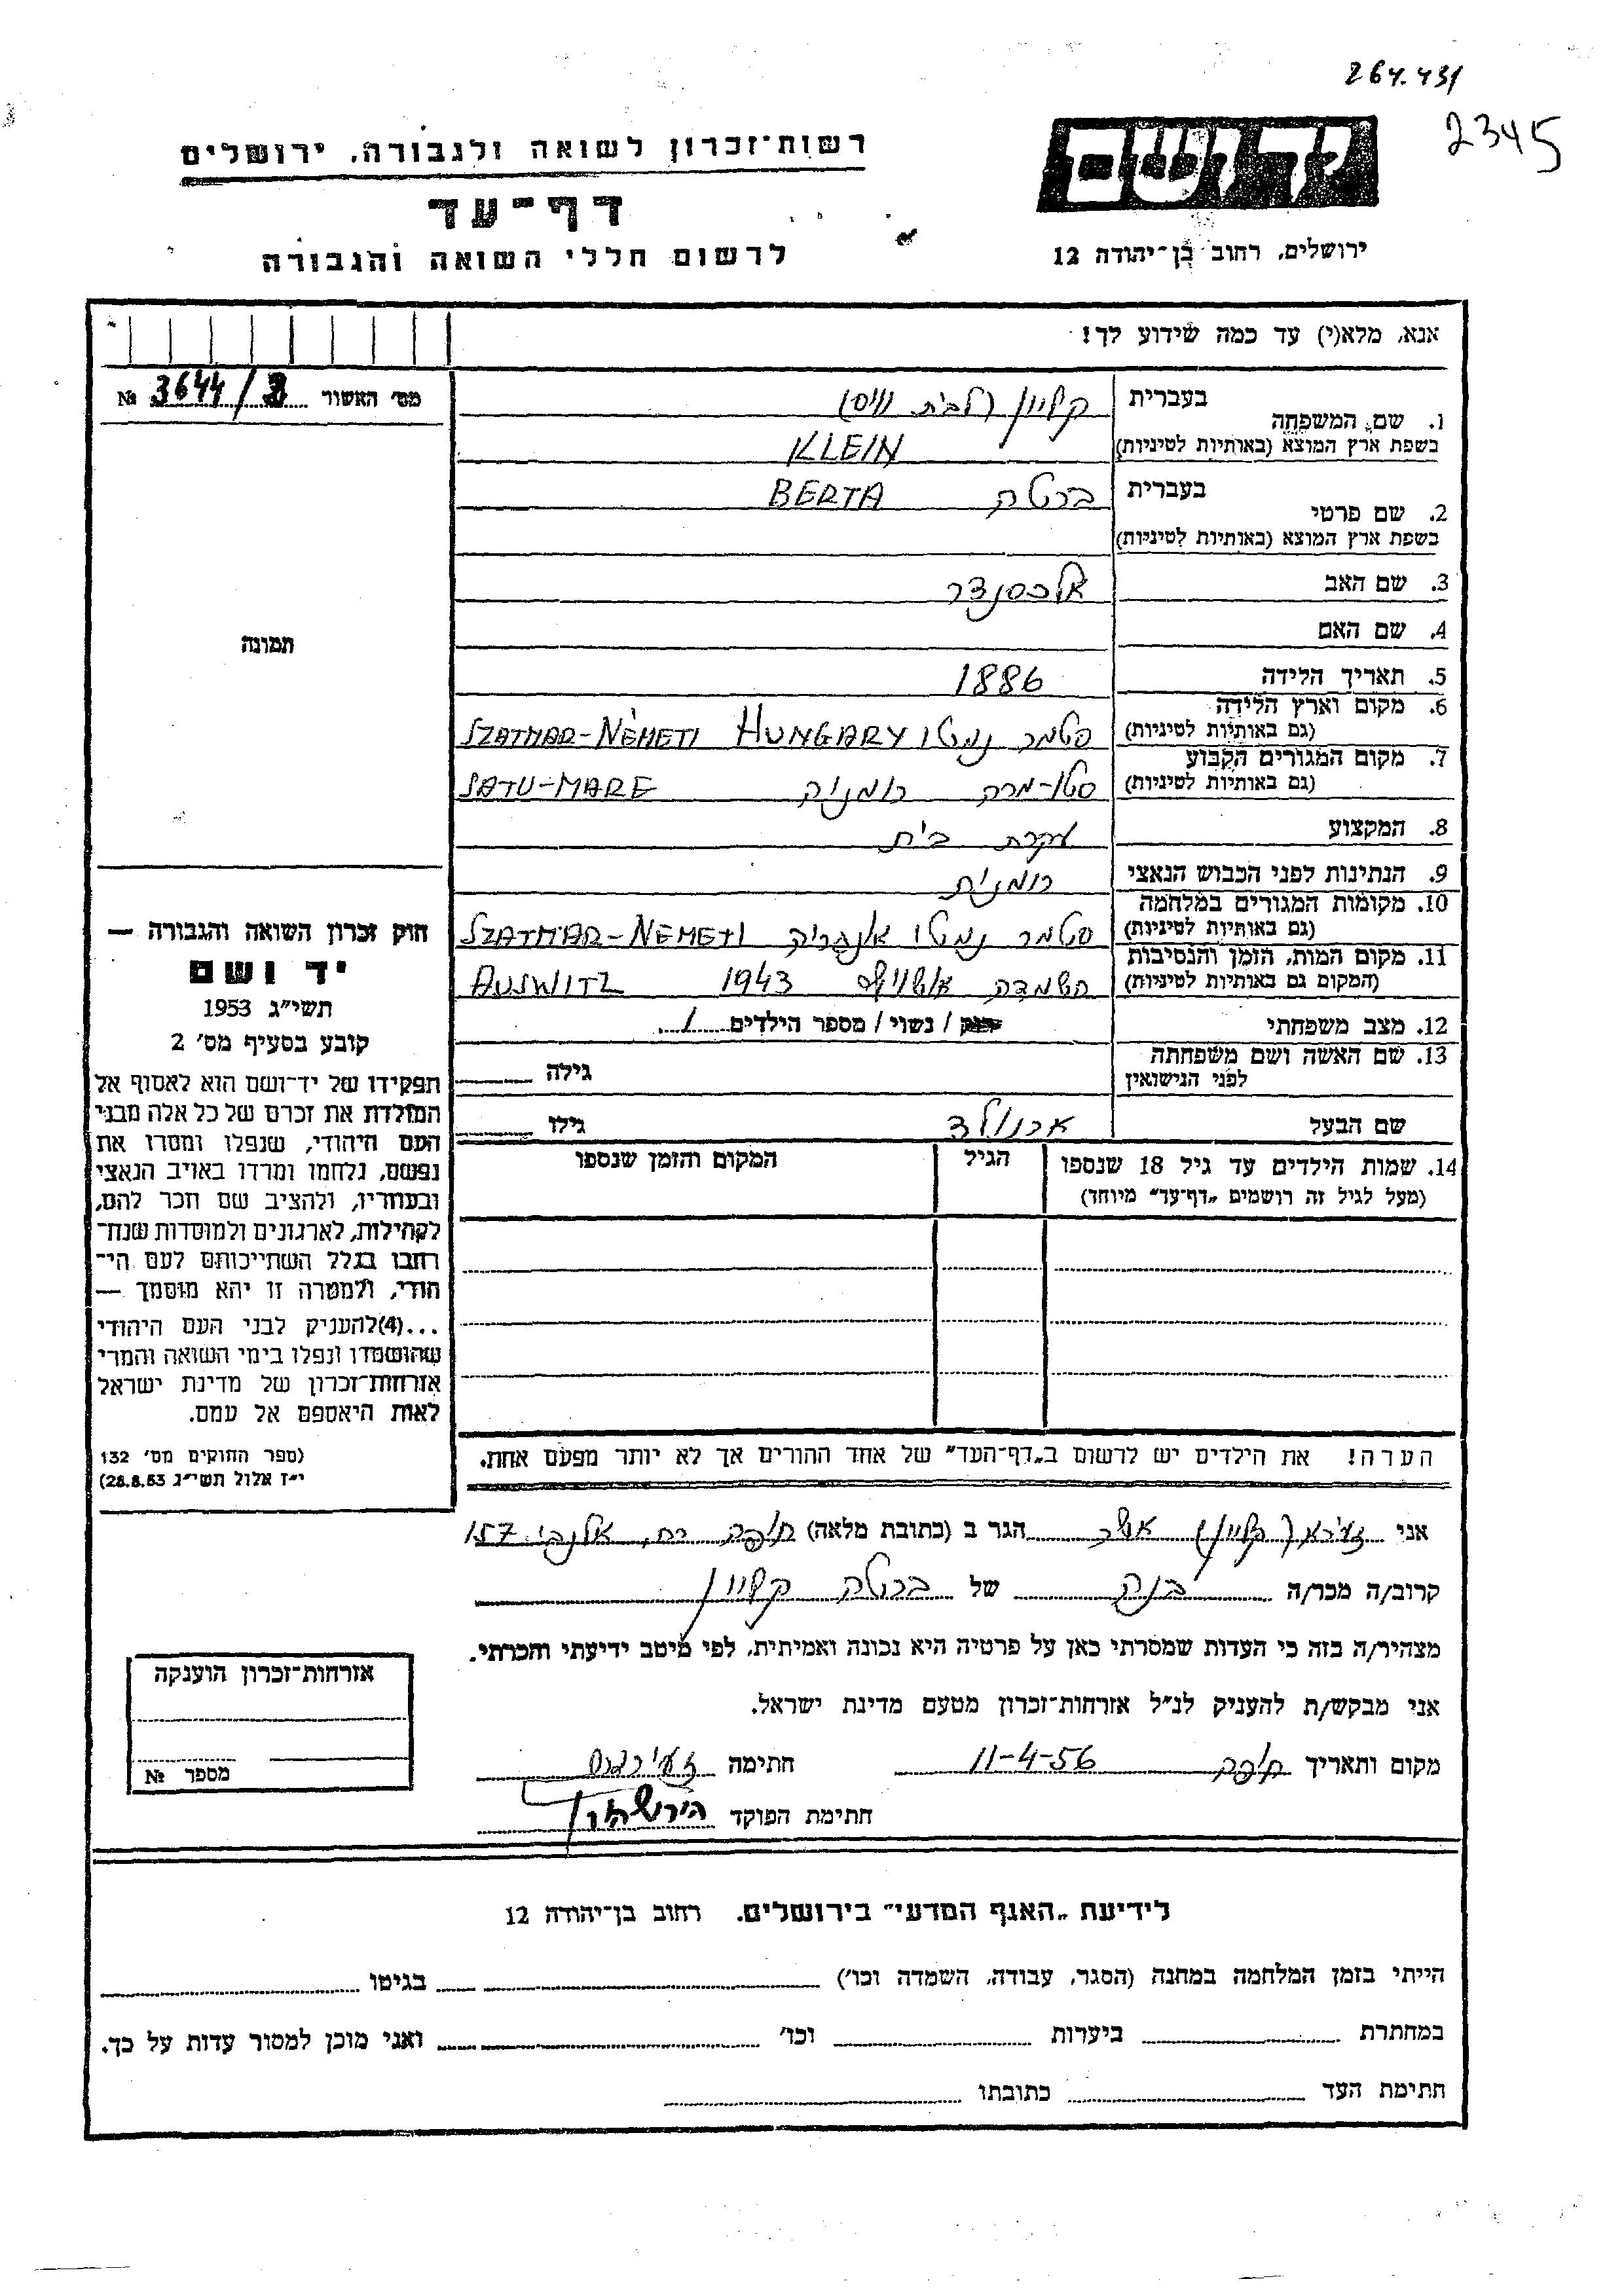 264.431
2345
יד ושם
רשות־זכרון לשואה ולגבורה, ירושלים
דף־עד
לרשום חללי השואה והגבורה
ירושלים, רחוב בן־יהודה 12
אנא, מלא(י) עד כמה שידוע לך!
מס׳ האשור 3644/3 №
תמונה
1. שם המשפחה בעברית קליין (לבית וויס)
בשפת ארץ המוצא (באותיות לטיניות) KLEIN
2. שם פרטי בעברית ברטה BERTA
בשפת ארץ המוצא (באותיות לטיניות)
3. שם האב אלכסנדר
4. שם האם
5. תאריך הלידה 1886
6. מקום וארץ הלידה
(גם באותיות לטיניות) סטמר נמטי SZATMAR-NÉMETI HUNGARY
7. מקום המגורים הקבוע
(גם באותיות לטיניות) סטו-מרה רומניה SATU-MARE
8. המקצוע עקרת בית
9. הנתינות לפני הכבוש הנאצי רומנית
10. מקומות המגורים במלחמה
(גם באותיות לטיניות) סטמר נמטי אונגריה SZATMAR-NEMETI
11. מקום המות, הזמן והנסיבות
(המקום גם באותיות לטיניות) השמדה אושוויץ 1943 AUSWITZ
12. מצב משפחתי רווק / נשוי / מספר הילדים 1
13. שם האשה ושם משפחתה
לפני הנישואין גילה
שם הבעל ארנולד גילו
14. שמות הילדים עד גיל 18 שנספו הגיל המקום והזמן שנספו
(מעל לגיל זה רושמים „דף־עד״ מיוחד)
הערה! את הילדים יש לרשום ב„דף־העד״ של אחד ההורים אך לא יותר מפעם אחת.
חוק זכרון השואה והגבורה —
יד ושם
תשי״ג 1953
קובע בסעיף מס׳ 2
תפקידו של יד־ושם הוא לאסוף אל
המולדת את זכרם של כל אלה מבני
העם היהודי, שנפלו ומסרו את
נפשם, נלחמו ומרדו באויב הנאצי
ובעוזריו, ולהציב שם וזכר להם,
לקהילות, לארגונים ולמוסדות שנח־
רבו בגלל השתייכותם לעם הי־
הודי, ולמטרה זו יהא מוסמך —
...(4)להעניק לבני העם היהודי
שהושמדו ונפלו בימי השואה והמרי
אזרחות־זכרון של מדינת ישראל
לאות היאספם אל עמם.
(ספר החוקים מס׳ 132
י״ז אלול תשי״ג 28.8.53)
אני זעירא (קליין) אשר הגר ב (כתובת מלאה) חיפה רח. אלנבי 157
קרוב/ה מכר/ה בנה של ברטה קליין
מצהיר/ה בזה כי העדות שמסרתי כאן על פרטיה היא נכונה ואמיתית, לפי מיטב ידיעתי והכרתי.
אני מבקש/ת להעניק לנ״ל אזרחות־זכרון מטעם מדינת ישראל.
מקום ותאריך חיפה 11-4-56 חתימה
חתימת הפוקד
אזרחות־זכרון הוענקה
מספר №
לידיעת „האגף המדעי״ בירושלים. רחוב בן־יהודה 12
הייתי בזמן המלחמה במחנה (הסגר, עבודה, השמדה וכו׳) בגיטו
במחתרת ביערות וכו׳ ואני מוכן למסור עדות על כך.
חתימת העד כתובתו